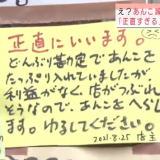 え？あんこ
「正直すぎる
正直にいいます。
どんぶり勘定であんこを
たっぷり入れていましたが
利益がなく、店がつぶれ
そうなので、あんこをへらし
ます。ゆるしてください。
2021.8.25 店主